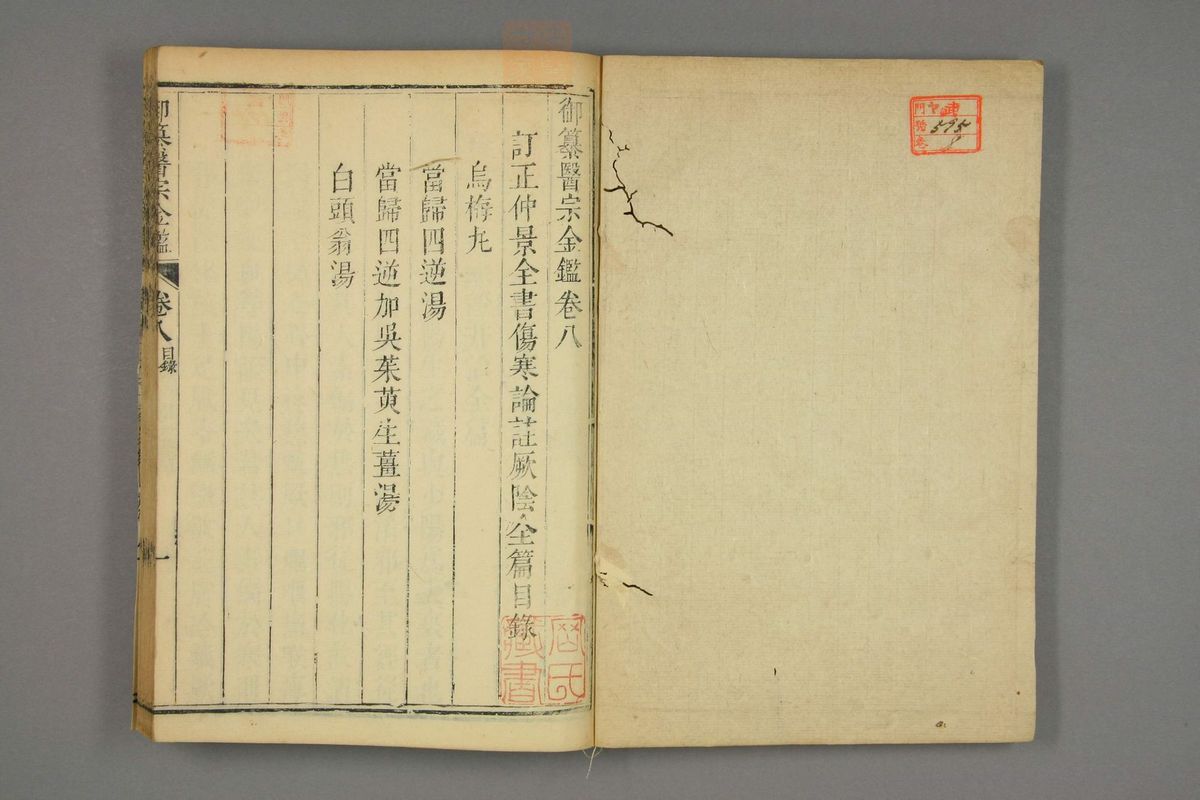 御纂醫宗金鑑卷八
訂正仲景全書傷寒論註厥陰全篇目錄
烏梅丸
當歸四逆湯
當歸四逆加吳茱萸生薑湯
白頭翁湯
御纂醫宗金鑑
卷八
目錄
一
藏書
門
號
卷
595
8